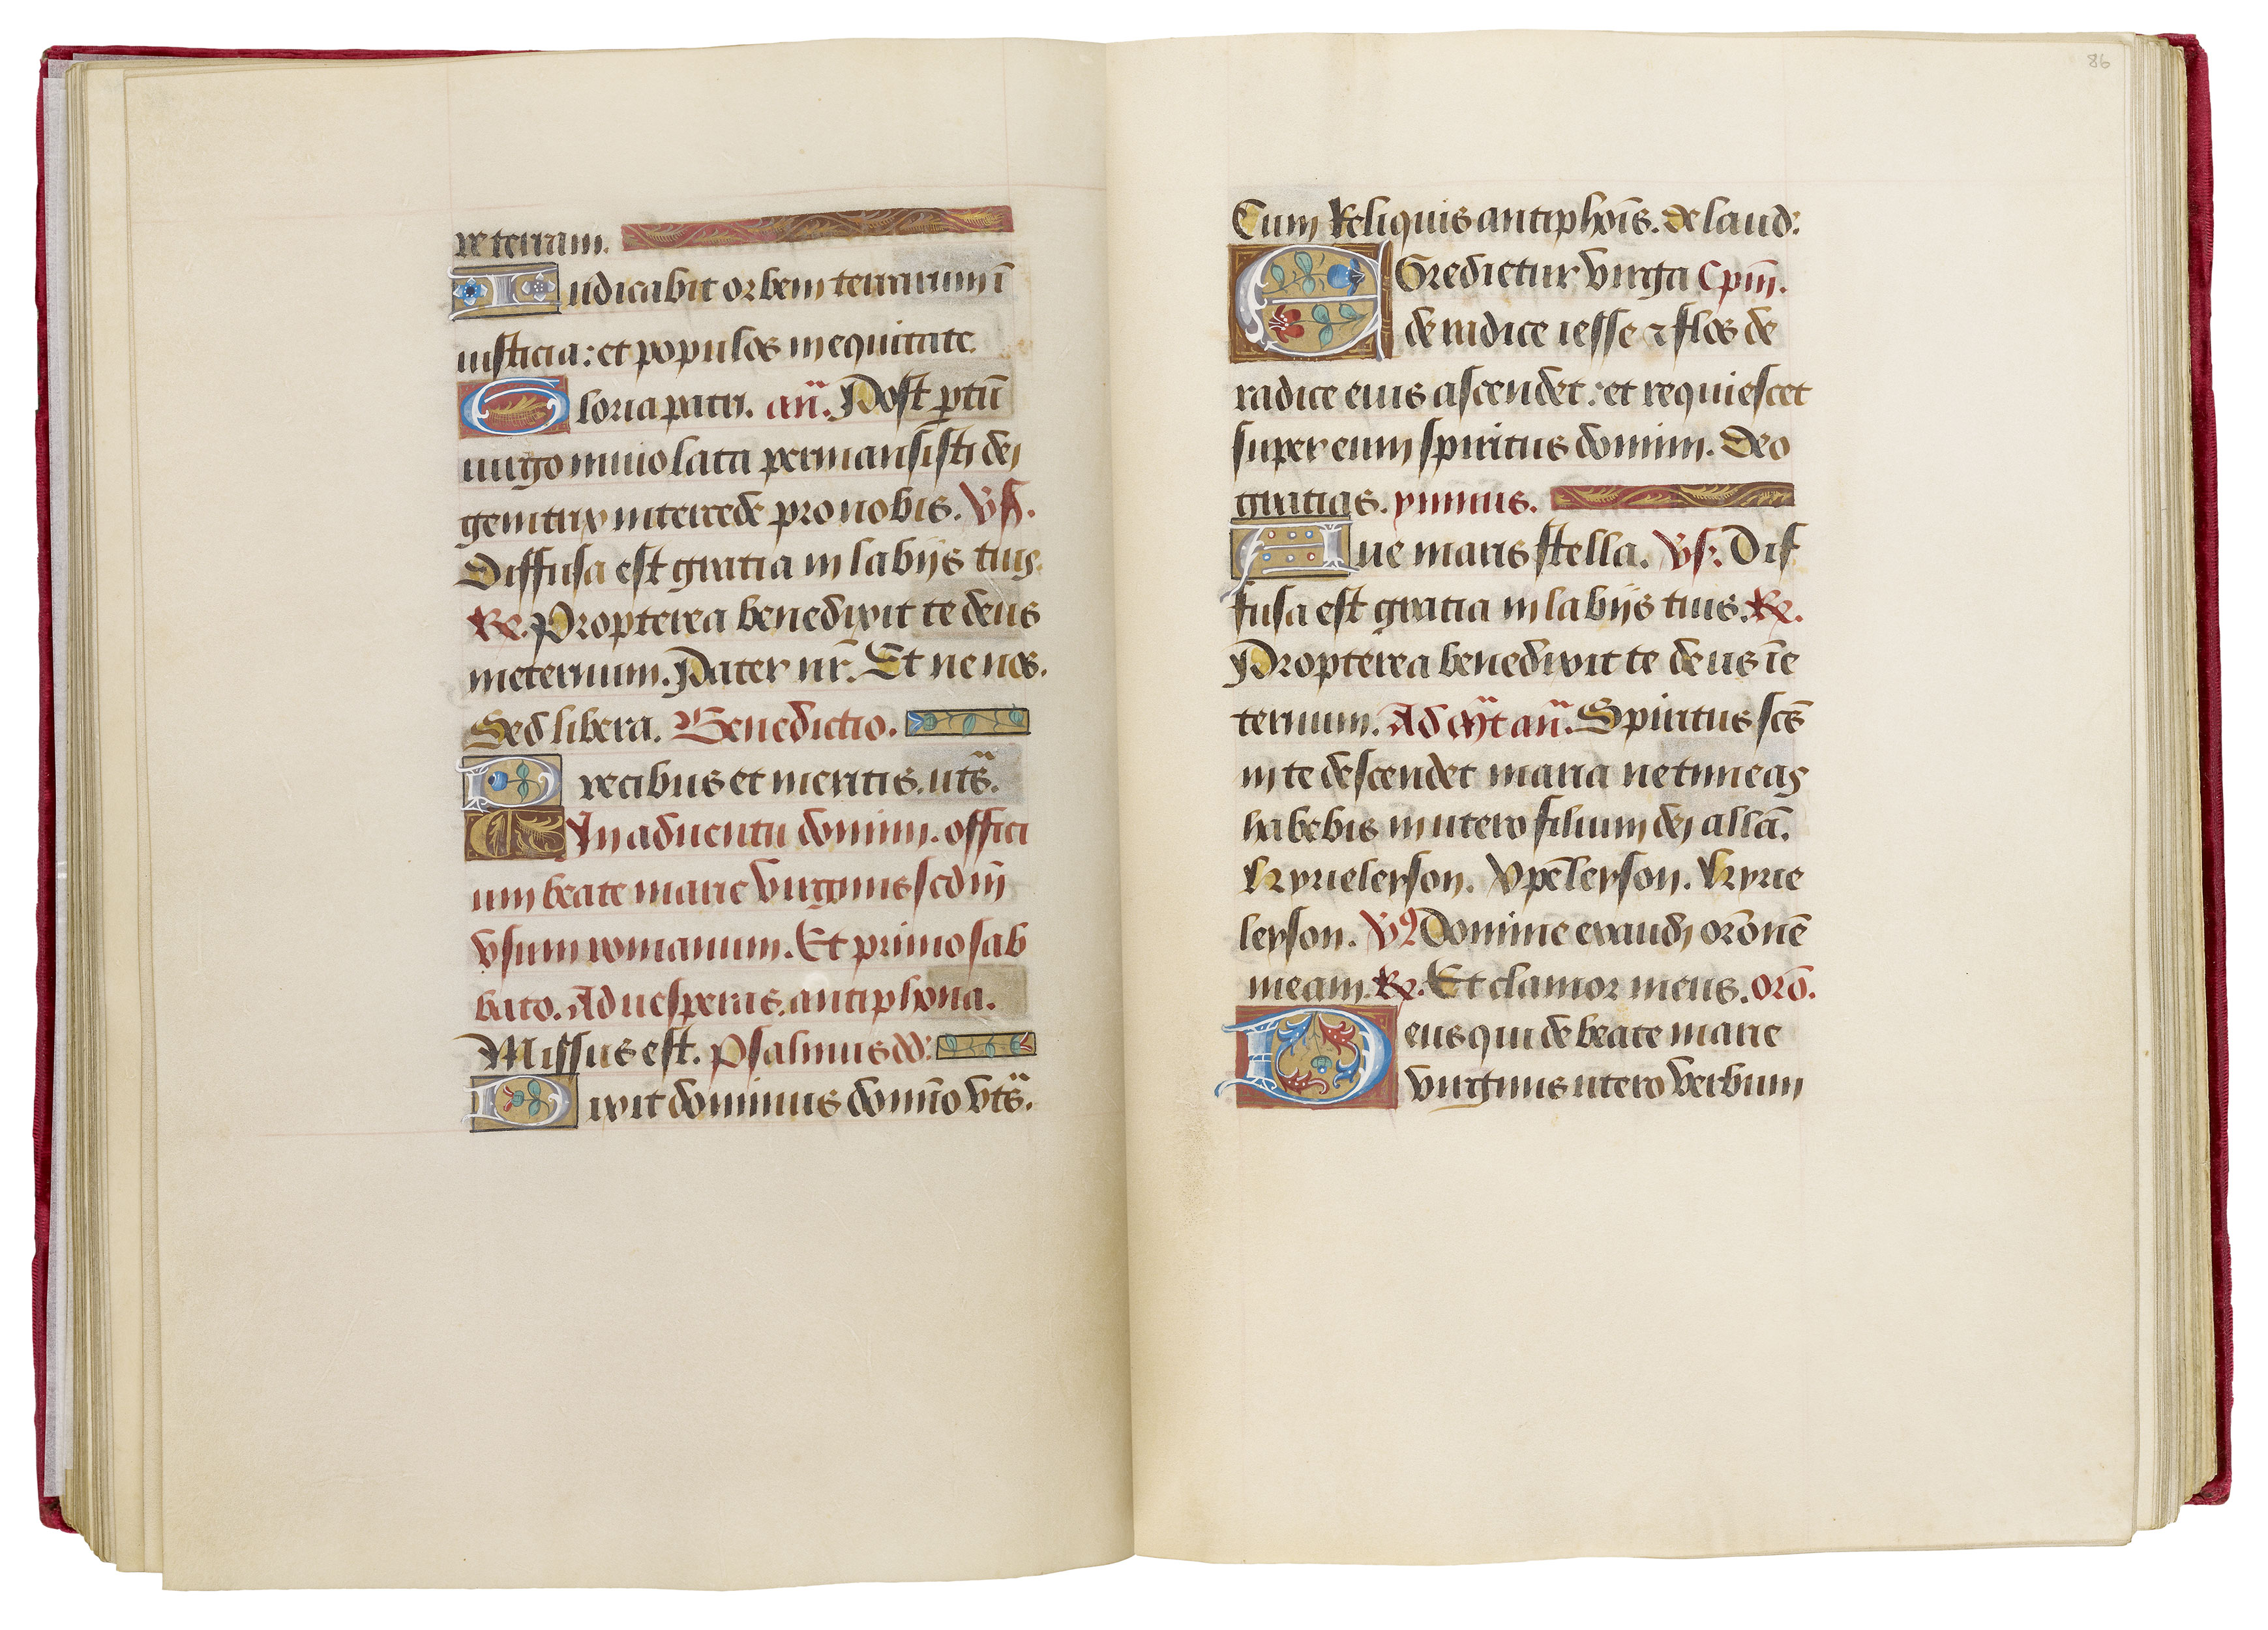 re terram.
Iudicabit orbem terrarum ī
iusticia: et populos in equitate.
Gloria patri. an̄. Post ptū
uirgo inuiolata permansisti dei
genitrix intercede pro nobis. Vs̄.
Diffusa est gratia in labijs tuis.
Rx. Propterea benedixit te deus
in eternum. Pater nr̄. Et ne nos.
Sed libera. Benedictio.
Precibus et meritis. utš.
In aduentu domini. offici
um beate marie virginis scdm̄
vsum romanum. Et primo sab
bato. Ad uesperas. antiphona.
Missus est. Psalmus dd:
Dixit dominus domīo vtš.
86
Cum Reliquis antiphoīs. de laud:
EGredietur virga Cpm̄.
de radice iesse ⁊ flos de
radice eius ascendet: et requiescet
super eum spiritus domini. Deo
gratias. ymnus.
Aue maris stella. Vs: Dif
fusa est gratia in labijs tuis. Rx.
Propterea benedixit te deus ī e
ternum. Ad mt̄ an̄. Spiritus scs̄
in te descendet maria ne timeas
habebis in utero filium dei allā.
Kyrieleyson. Xpēleyson. Kyrie
leyson. V Domine exaudi orōnē
meam. Rx. Et clamor meus. orō.
Deus qui de beate marie
virginis utero verbum